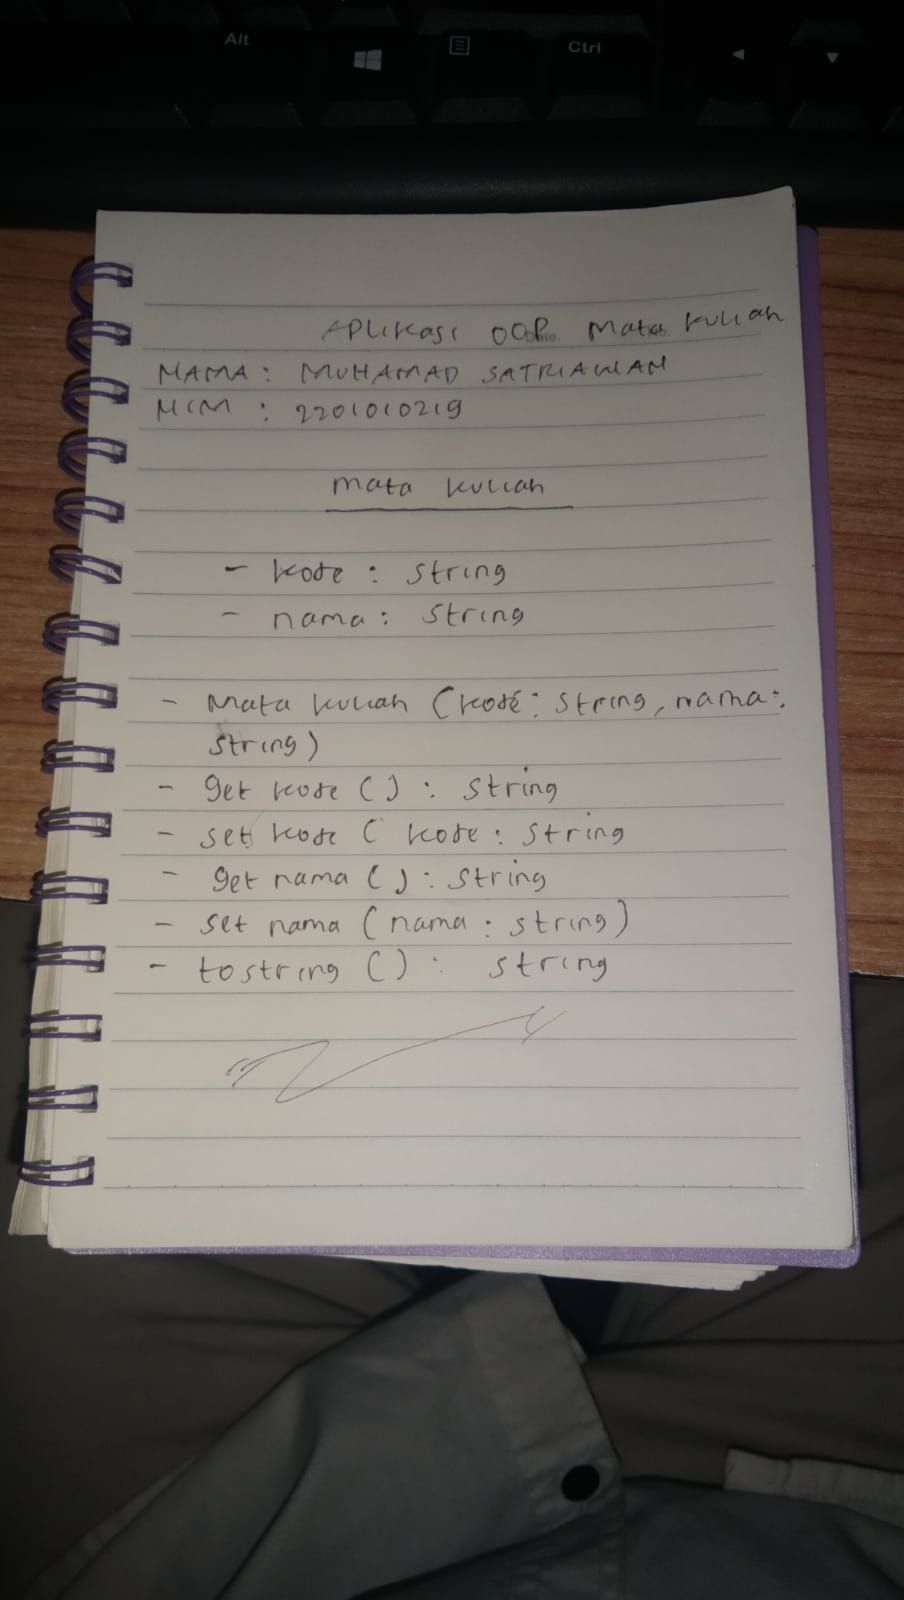 Alt
Ctrl
APLIKASI OOP Mata Kuliah
NAMA : MUHAMAD SATRIAWAN
NIM : 2201010219
Mata Kuliah
- kode : string
- nama : string
- Mata kuliah (kode : string, nama :
string)
- get kode () : string
- set kode ( kode : string
- get nama () : string
- set nama (nama : string)
- tostring () : string